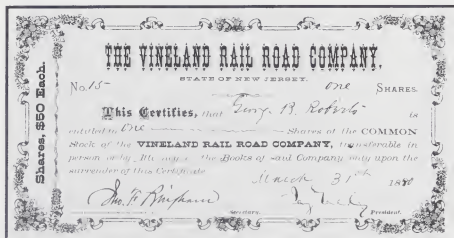 Shares, $50 Each.
THE VINELAND RAIL ROAD COMPANY,
STATE OF NEW JERSEY.
No. 15 one SHARES.
This Certifies, that George B. Roberts is
entitled to One Shares of the COMMON
Stock of the VINELAND RAIL ROAD COMPANY, transferable in
person or by Attorney on the Books of said Company only upon the
surrender of this Certificate
March 31st 1880
Jno. F. Bingham
Secretary. President.